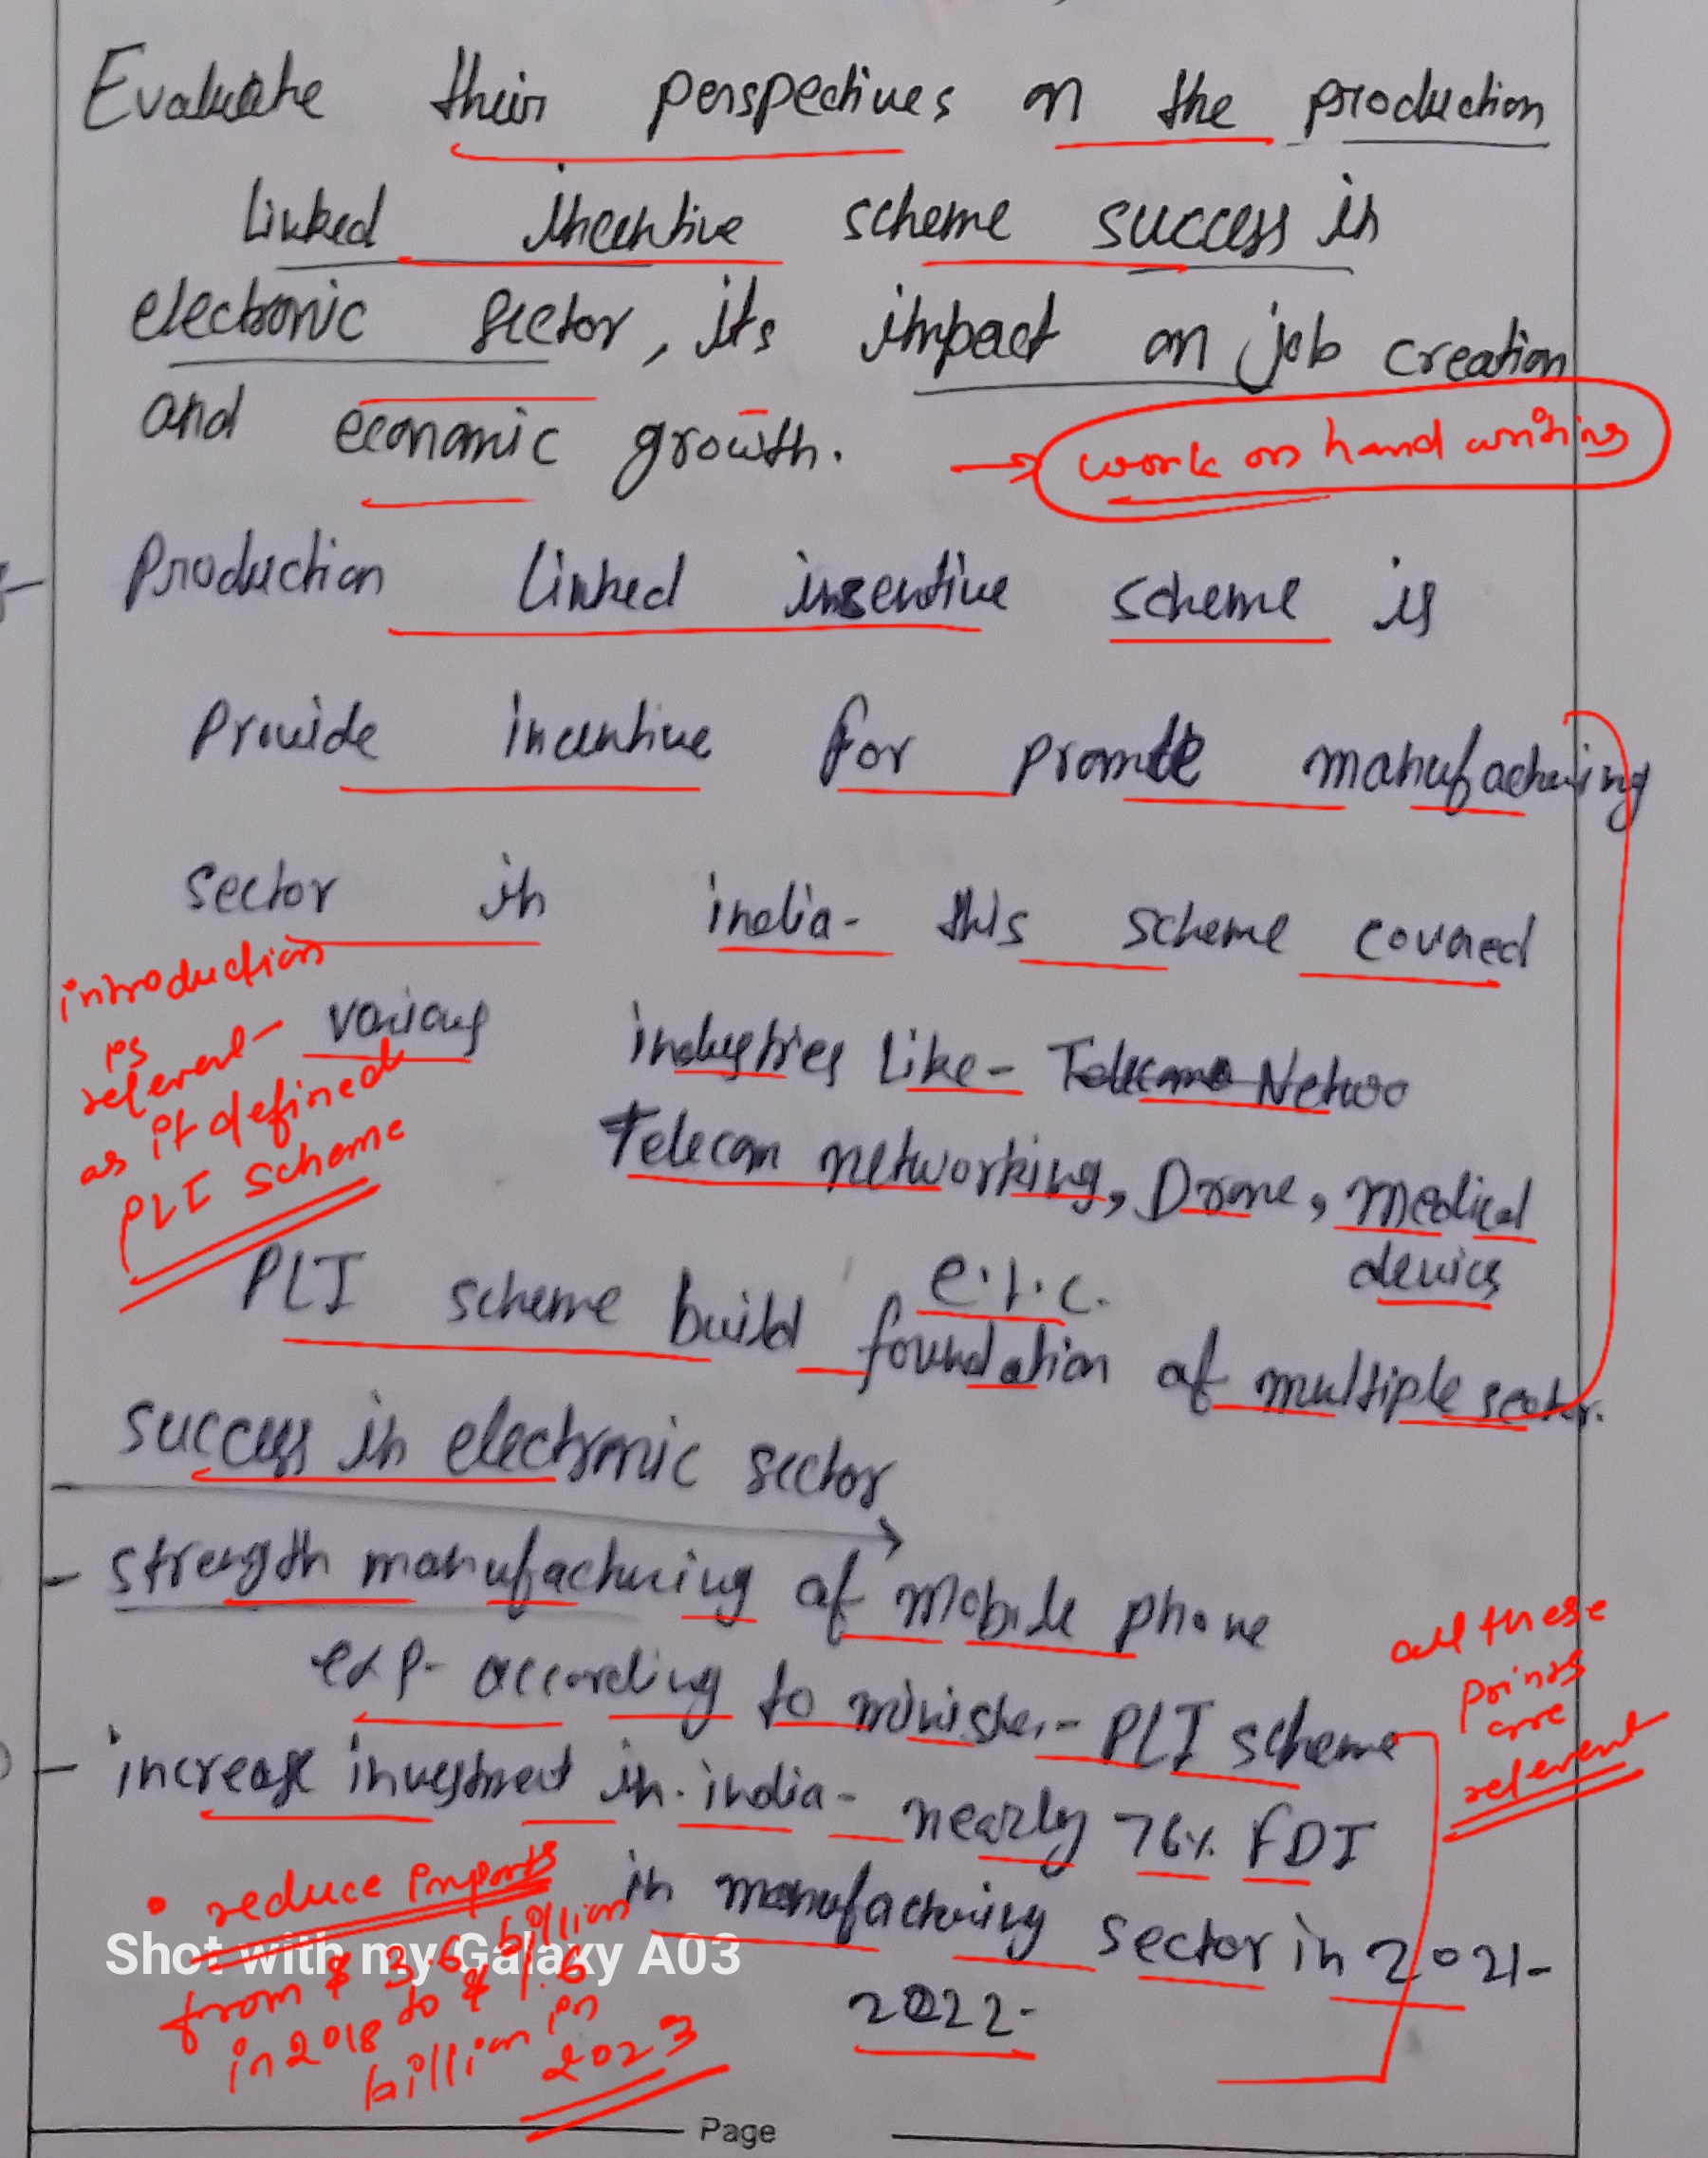 Evaluate their perspectives on the production
Linked incentive scheme success in
electronic sector, its impact on job creation
and economic growth.
→ work on hand writing
Production Linked insentive scheme is
Provide incentive for promote manufacturing
sector in india- this scheme covered
introduction
is
relevent
as it defined
PLI scheme
various industries Like- Telecomo Netwo
Telecom networking, Drone, medical
devics
e.t.c.
PLI scheme build foundation of multiple sector.
success in electronic sector
- strength manufacturing of mobile phone
exp- according to minister- PLI scheme
- increase investment in india- nearly 76% FDI
in manufacturing sector in 2021-
2022-
all these
points
are
relevent
• reduce imports
from $ 3.6 billion
in 2018 to $ 1.6
billion in
2023
Shot with my Galaxy A03
Page